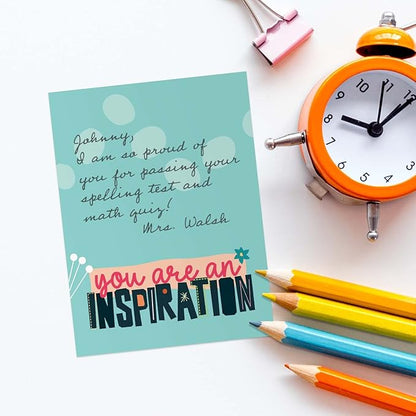 Johnny,
I am so proud of
you for passing your
spelling test and
math quiz!
Mrs. Walsh
you are an
INSPIRATION
11
12
1
10
9
8
7
6
5
4